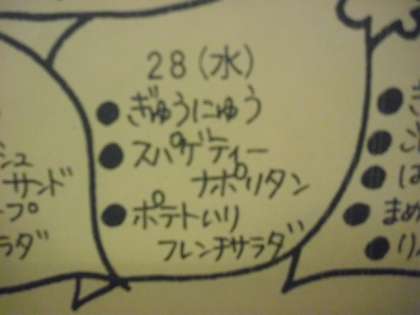 28(水)
●ぎゅうにゅう
●スパゲティー
ナポリタン
●ポテトいり
フレンチサラダ
サンド
まめ